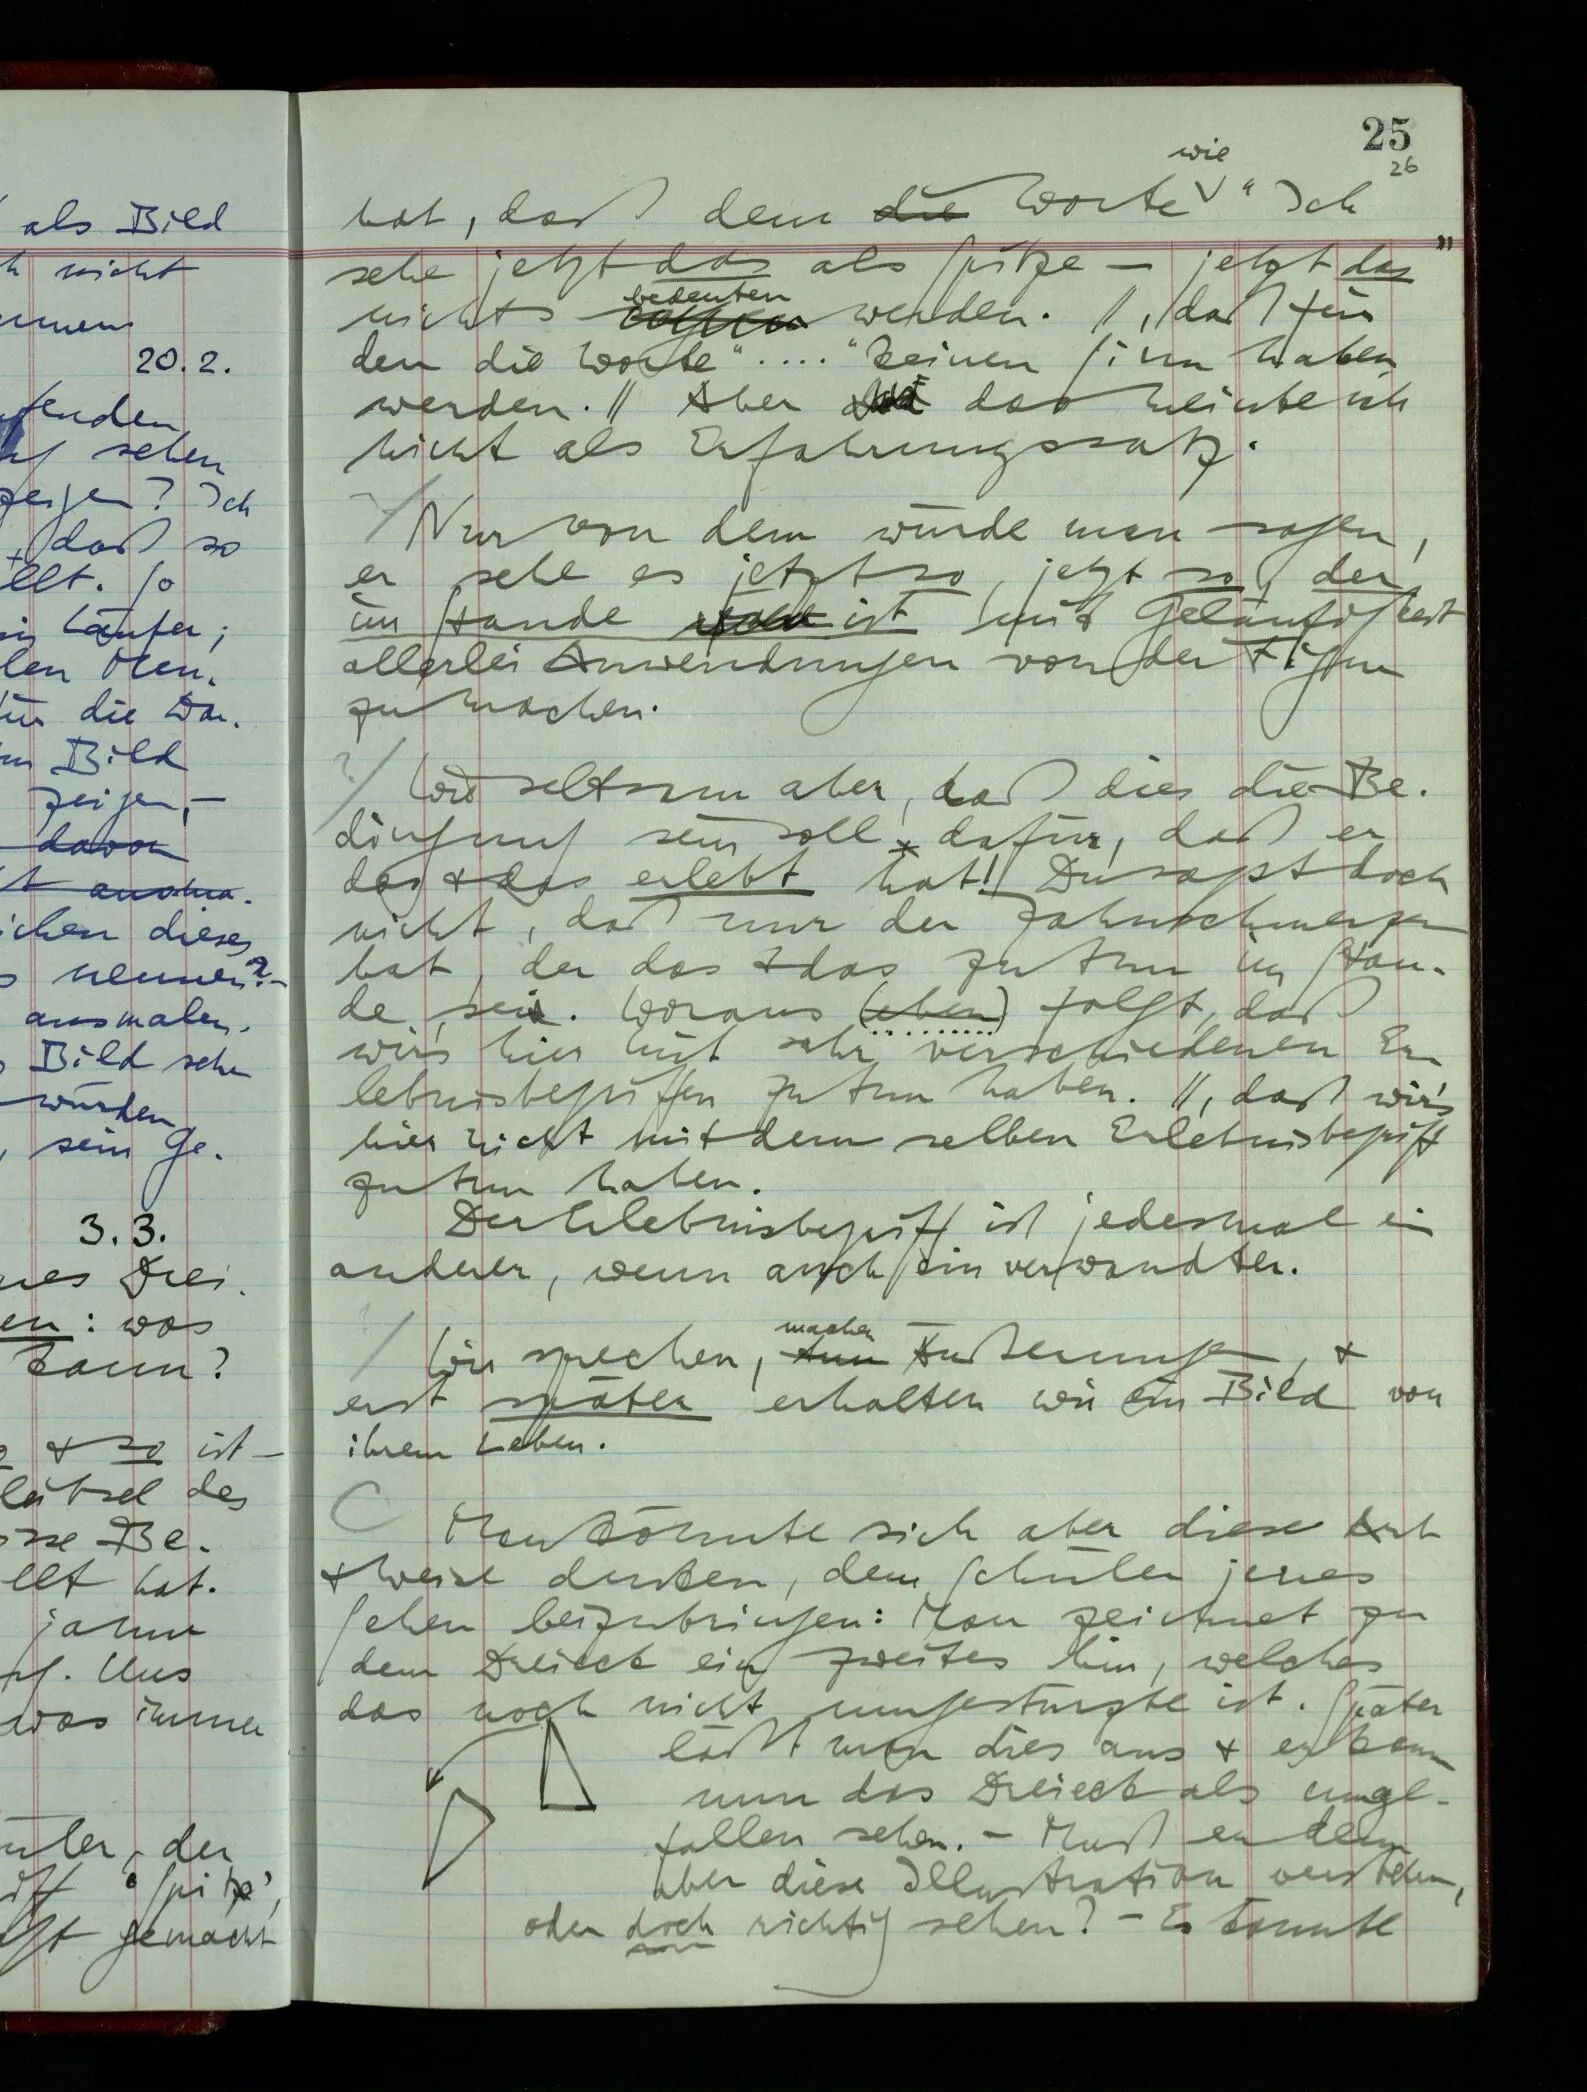 als Bild
nicht
20.2.
sehen
zeigen? Ich
, daß so
llt. So
Läufer;
len Men-
die Dar-
Bild
zeigen, –
davon
ichen dieses
nennen? –
ausmalen.
Bild sehe
würden
, sein Ge-
3.3.
nes Drei-
en: was
kann?
& so ist –
Rätsel des
sse Be-
llt hat.
jahre
Uns
was immer
üler, der
iff 'Spitze',
gemacht
25
26
wie
hat, daß dem die Worte " Ich
sehe jetzt das als Spitze – jetzt das"
bedeuten
nichts werden. //, daß für
den die Worte " .... " keinen Sinn haben
werden. // Aber das meinte ich
nicht als Erfahrungssatz.
Nur von dem würde man sagen,
er sehe es jetzt so, jetzt so, der
im Stande ist mit Geläufigkeit
allerlei Anwendungen von der Figur
zu machen.
?/ Wie seltsam aber, daß dies die Be-
dingung sein soll dafür, daß er
das & das erlebt hat! Du sagst doch
nicht, daß nur der Zahnschmerzen
hat, der das & das zu tun im Stan-
de sei. Woraus (eben) folgt, daß
wir's hier mit sehr verschiedenen Er-
lebnisbegriffen zu tun haben. //, daß wir's
hier nicht mit dem selben Erlebnisbegriff
zu tun haben.
Der Erlebnisbegriff ist jedesmal ein
anderer, wenn auch ein verwandter.
machen
/ Wir sprechen, tun Äußerungen, &
erst später erhalten wir ein Bild von
ihrem Leben.
C Man könnte sich aber diese Art
& Weise denken, dem Schüler jenes
Sehen beizubringen: Man zeichnet zu
dem Dreieck ein zweites hin, welches
das noch nicht umgestürzte ist. Später
läßt man dies aus & er kann
nun das Dreieck als umge-
fallen sehen. – Muß er denn
aber diese Illustration verstehen,
oder doch richtig sehen? – Es könnte